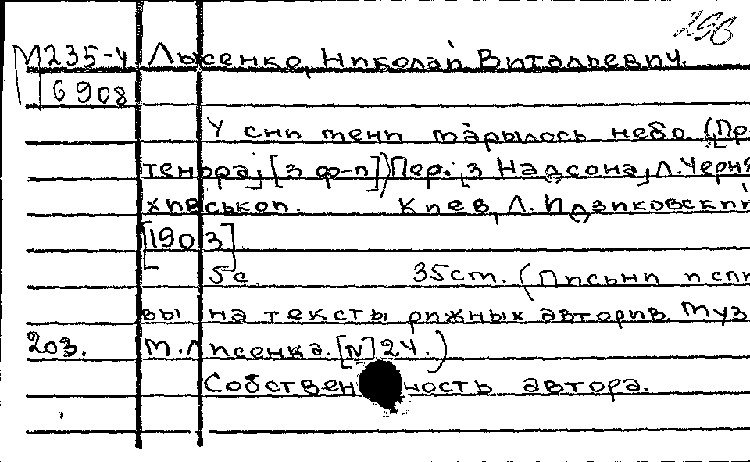 296
М235-4 Лысенко, Николай Витальевич.
16908
У сни мени марылось небо. (Для
тенора; [з ф-п]) Пер. [з Надсона, Л. Черня-
хивськои. Киев, Л. Идзиковский
[1903]
5с. 35cm. (Письни и спи
вы на тексты рижных авторив. Муз.
203. М. Лисенка. [N] 24.)
Собственность автора.